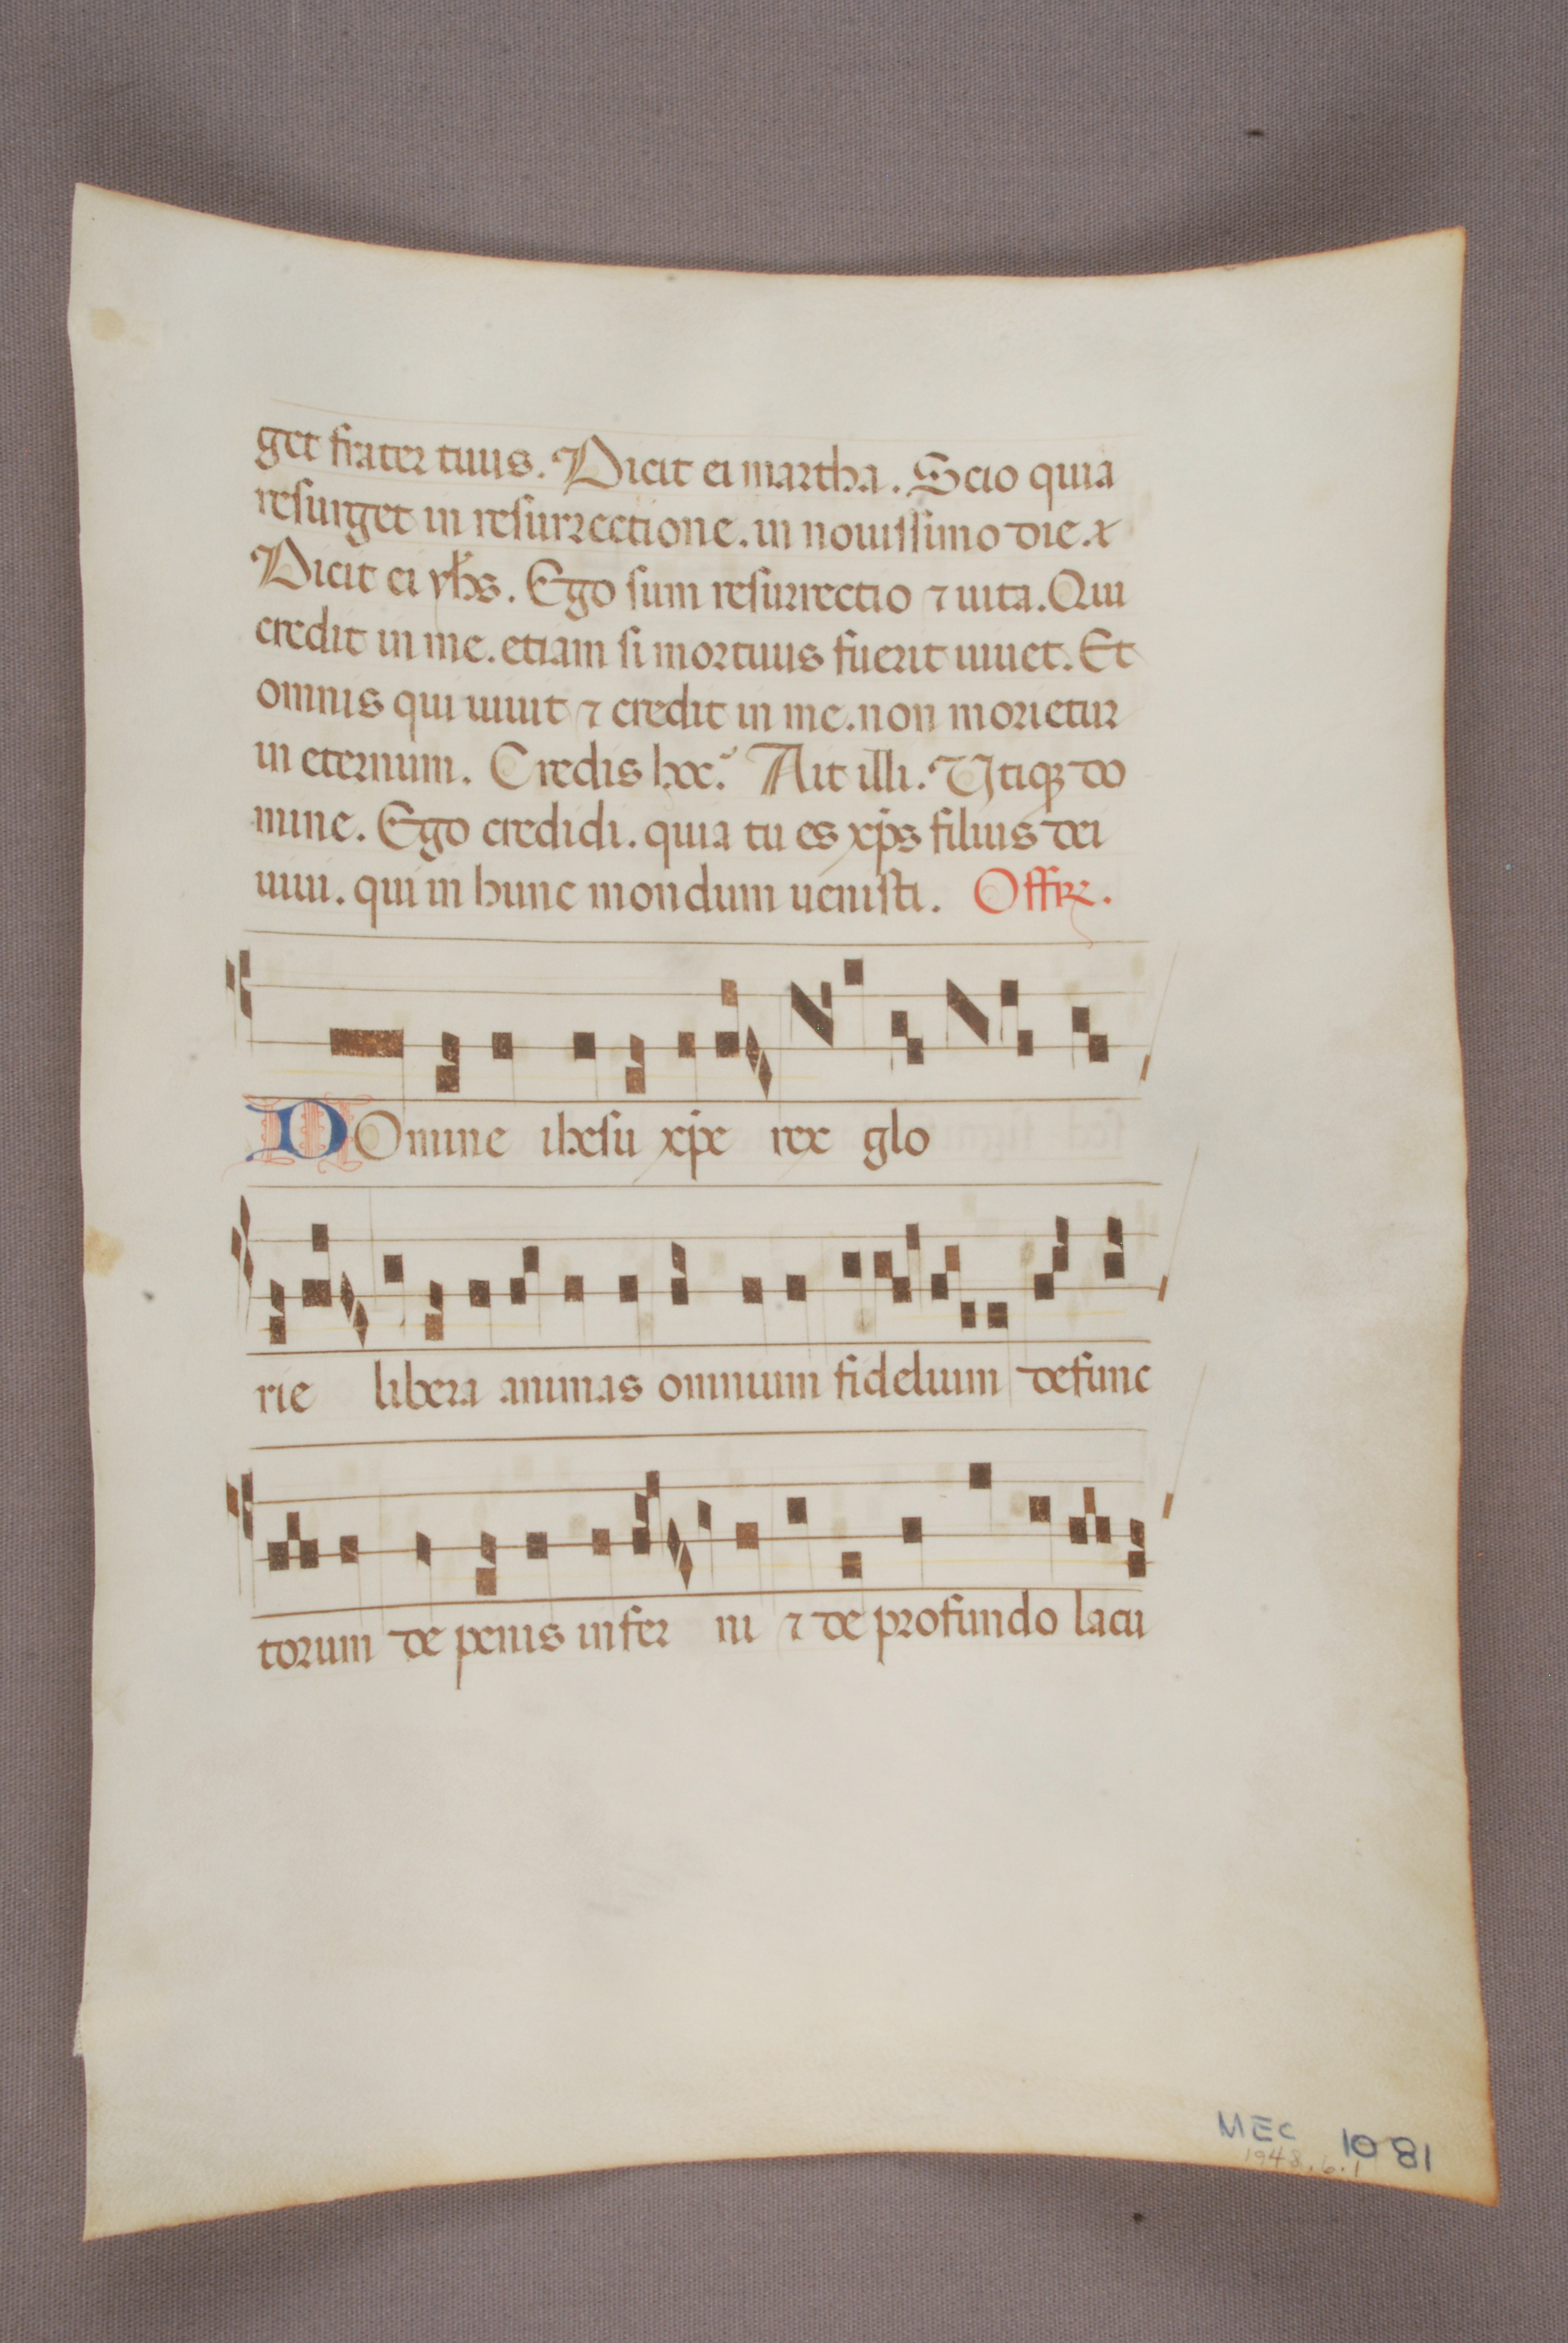 get frater tuus. Dicit ei martha. Scio quia
resurget in resurrectione. in nouissimo die. x
Dicit ei yhs. Ego sum resurrectio ⁊ uita. Qui
credit in me. etiam si mortuus fuerit uiuet. Et
omnis qui uiuit ⁊ credit in me. non morietur
in eternum. Credis hoc? Ait illi. Utiqꝫ do
mine. Ego credidi. quia tu es xp̄s filius dei
uiui. qui in hunc mondum uenisti. Offrꝫ.
DOmine ihesu xp̄e rex glo
rie libera animas omnium fidelium defunc
torum de penis infer ni ⁊ de profundo lacu
MEC 1081
1948.6.1